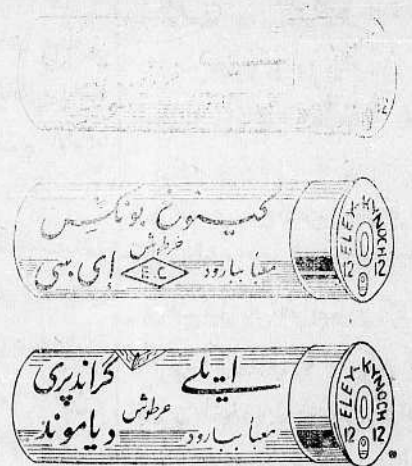 12
كينوخ بونكس
خرطوش
معبأ ببارود E.C إي سي
ELEY-KYNOCH
12 12
ايلي گراندپري
خرطوش
معبأ ببارود دياموند
ELEY-KYNOCH
12 12